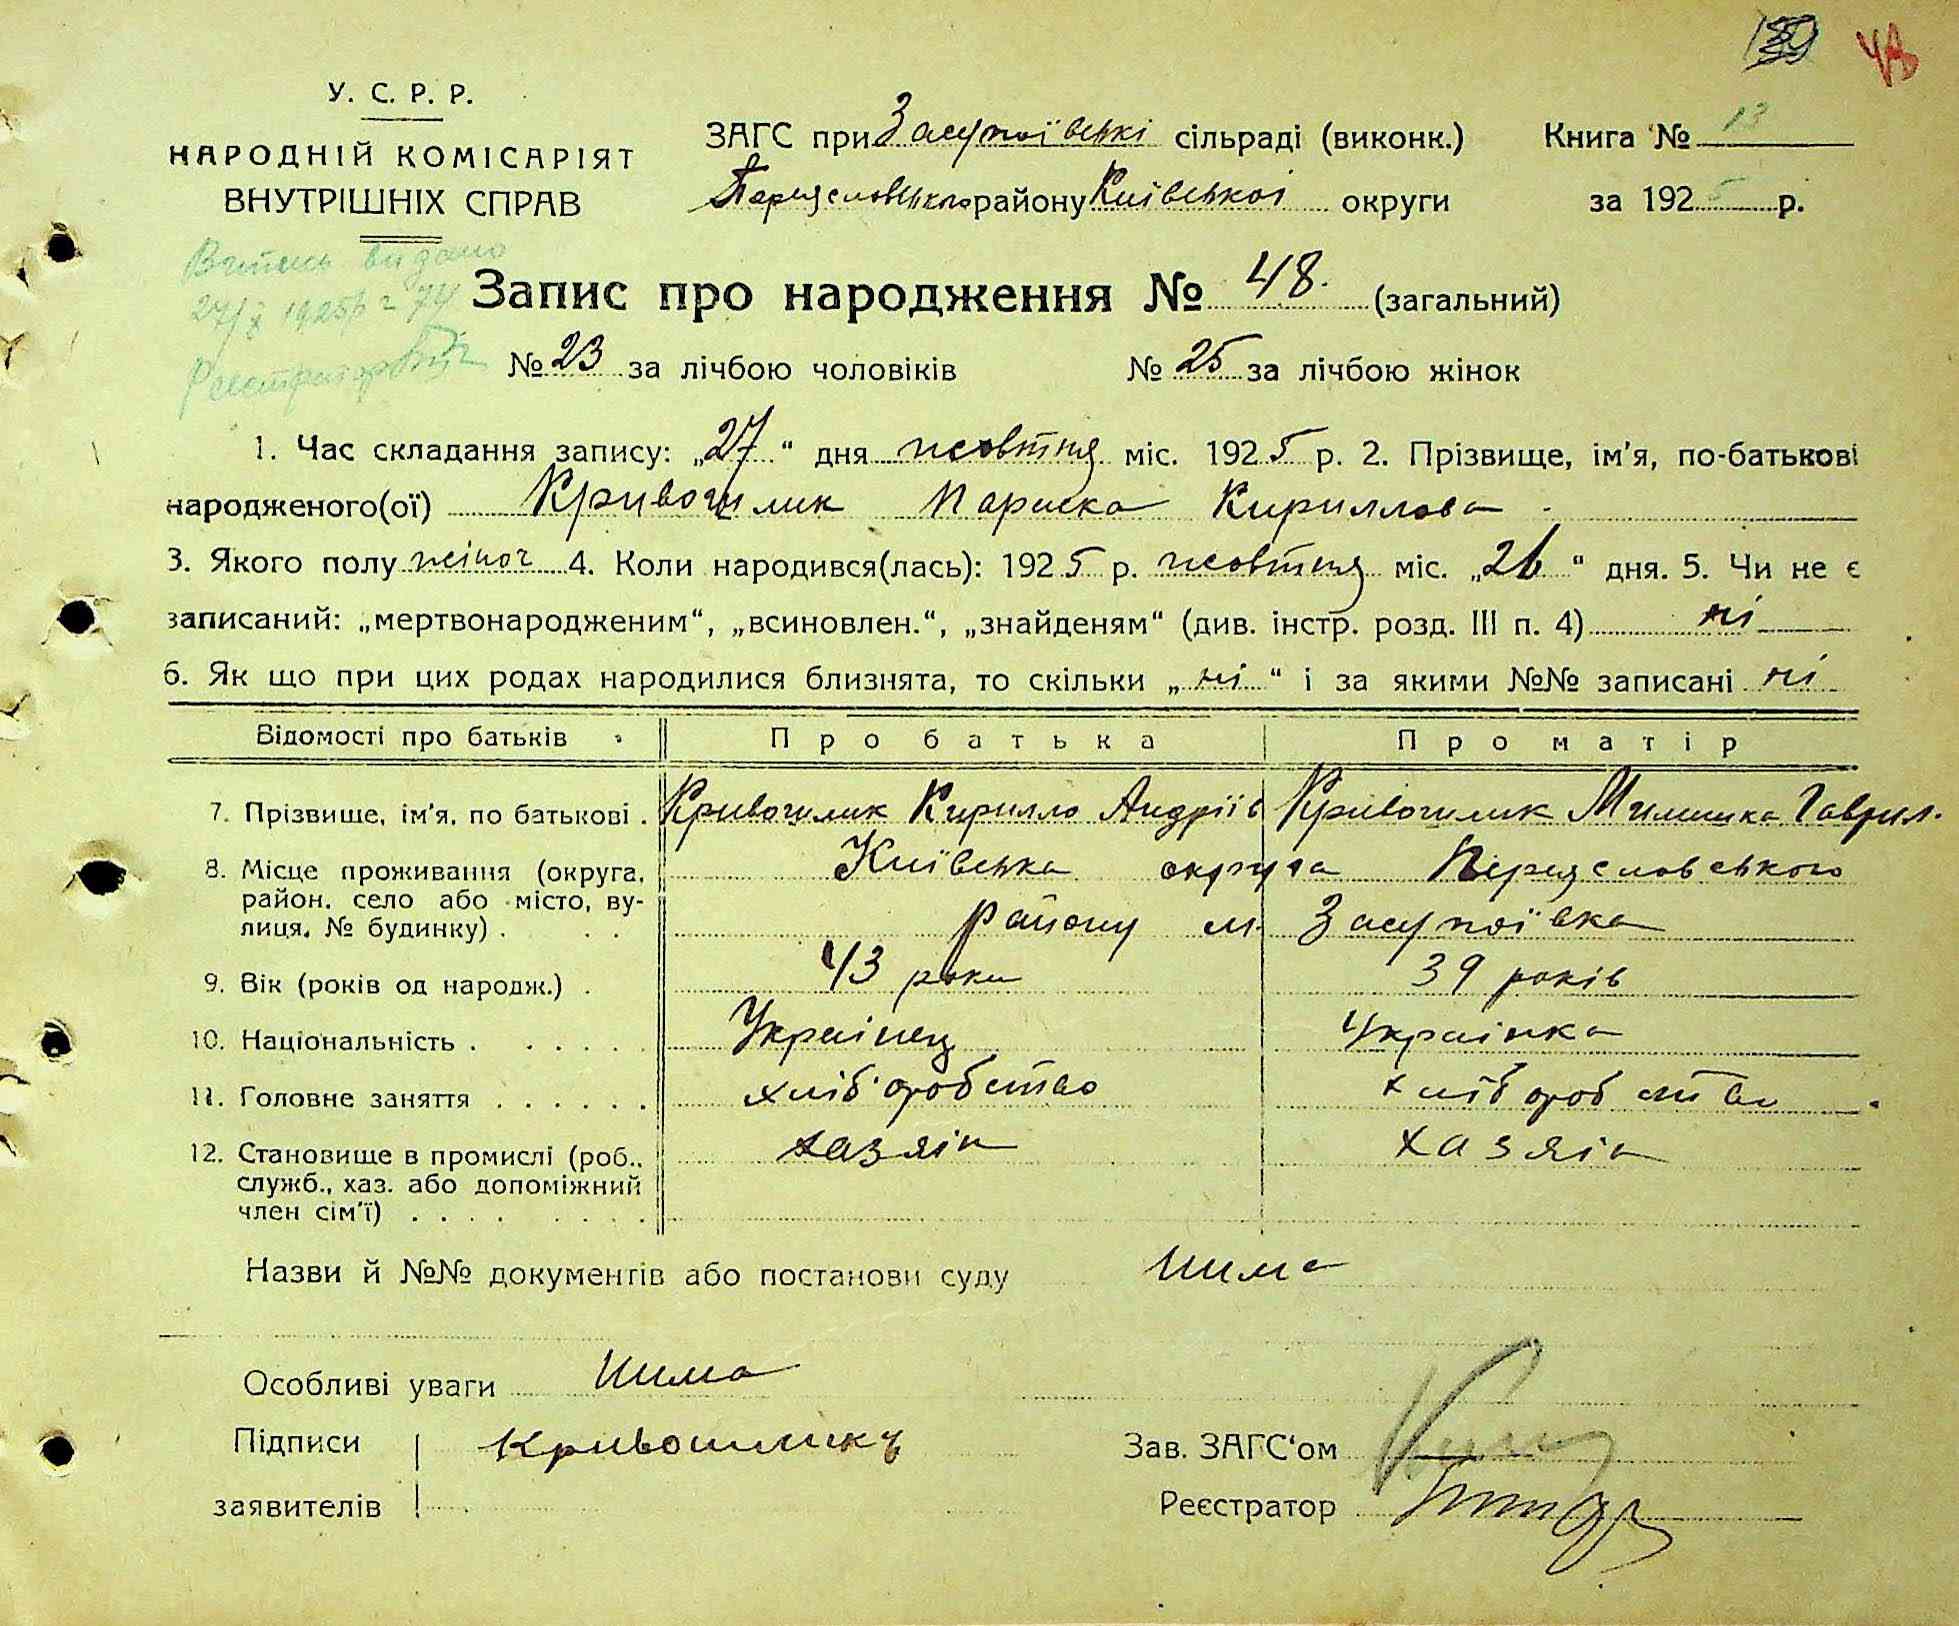 У. С. Р. Р.
НАРОДНІЙ КОМІСАРІЯТ
ВНУТРІШНІХ СПРАВ
ЗАГС при Засупоївські сільраді (виконк.) Книга № 13
Переяславського району Київської округи за 1925 р.
Витись видано
27/X 1925р
Реєстратор
Запис про народження № 48. (загальний)
№ 23 за лічбою чоловіків № 25 за лічбою жінок
1. Час складання запису: „27“ дня жовтня міс. 1925 р. 2. Прізвище, ім'я, по-батькові
народженого(ої) Кривошлик Параска Кириллова
3. Якого полу жіноч 4. Коли народився(лась): 1925 р. жовтня міс. „26“ дня. 5. Чи не є
записаний: „мертвонародженим“, „всиновлен.“, „знайденям“ (див. інстр. розд. III п. 4) ні
6. Як що при цих родах народилися близнята, то скільки „ні“ і за якими №№ записані ні
Відомості про батьків Про батька Про матір
7. Прізвище, ім'я, по батькові . Кривошлик Кирилло Андріїв Кривошлик Гаврил.
8. Місце проживання (округа, Київська округа Переяславського
район, село або місто, ву-
лиця, № будинку) . . . району м. Засупоївка
9. Вік (років од народж.) . 43 роки 39 років
10. Національність . . . . . . Українец Українка
11. Головне заняття . . . . . . хліборобство хліборобство
12. Становище в промислі (роб., хазяін хазяін
служб., хаз. або допоміжний
член сім'ї) . . . . . . . .
Назви й №№ документів або постанови суду нима
Особливі уваги нима
Підписи Кривошликъ Зав. ЗАГС'ом
заявителів Реєстратор